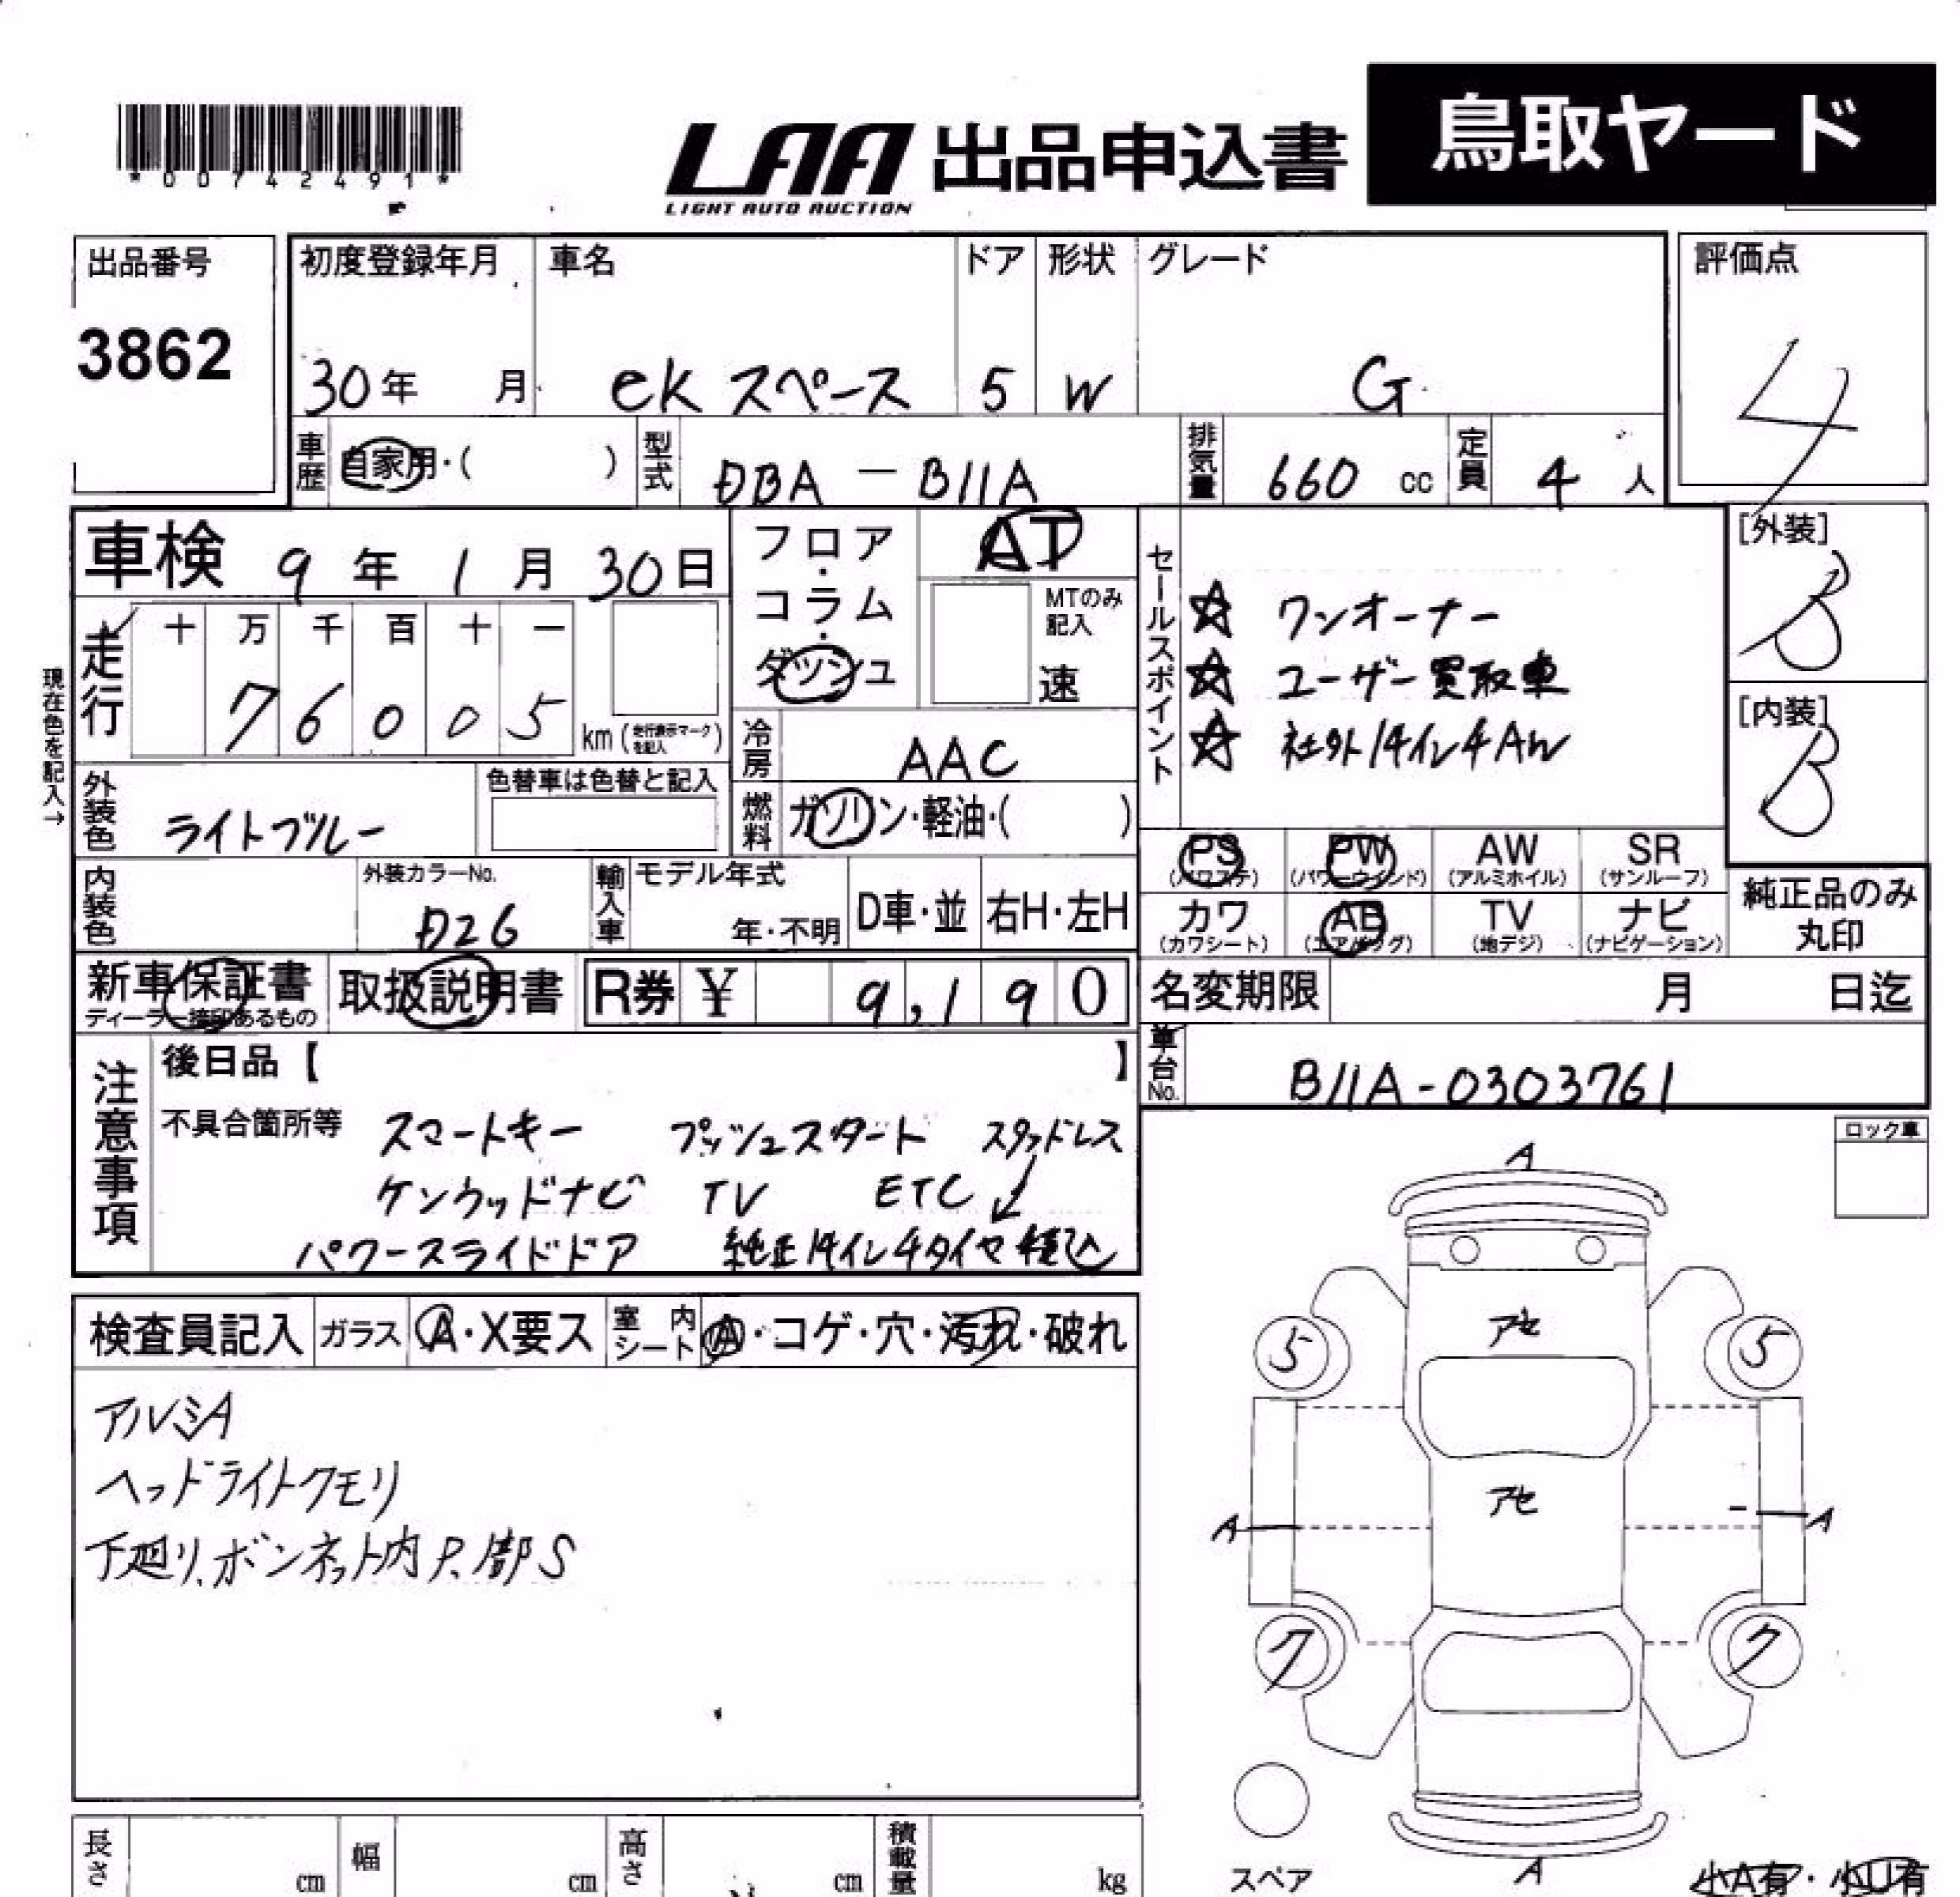 鳥取ヤード
*00742491*
LAA 出品申込書
LIGHT AUTO AUCTION
出品番号
3862
初度登録年月 車名 ドア 形状 グレード
30年 月 ek スペース 5 W G
評価点
4
車歴 自家用・( ) 型式 DBA－B11A 排気量 660 cc 定員 4 人
車検 9年 1月 30日
フロア・コラム・ダッシュ
AT
MTのみ記入
速
セールスポイント
☆ ワンオーナー
☆ ユーザー買取車
☆ 社外14インチAW
[外装]
B
[内装]
B
現在色を記入→
走行 十 万 千 百 十 一
7 6 0 0 5 km (走行表示マークを記入)
冷房 AAC
外装色 ライトブルー 色替車は色替と記入
燃料 ガソリン・軽油・( )
PS (パワステ) PW (パワーウインド) AW (アルミホイル) SR (サンルーフ)
カワ (カワシート) AB (エアバッグ) TV (地デジ) ナビ (ナビゲーション)
純正品のみ丸印
内装色 外装カラーNo. D26 輸入車 モデル年式 年・不明 D車・並 右H・左H
新車保証書 ディーラー捺印あるもの 取扱説明書 R券 ¥ 9,190
名変期限 月 日迄
車台No. B11A-0303761
注意事項
後日品【 】
不具合箇所等 スマートキー プッシュスタート スタッドレス
ケンウッドナビ TV ETC
パワースライドドア 純正14インチタイヤ積込
ロック車
検査員記入 ガラス A・X要ス 室内シート A・コゲ・穴・汚れ・破れ
アルミA
ヘッドライトクモリ
下廻り、ボンネット内P.部S
A
アセ
5 5
アセ
A A
7 7
A
スペア
小A有・小U有
長さ cm 幅 cm 高さ cm 積載量 kg